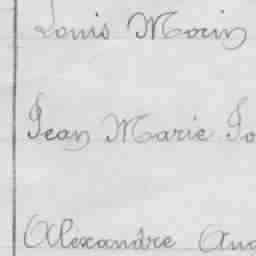 Louis Morin
Jean Marie Jo
Alexandre Aug